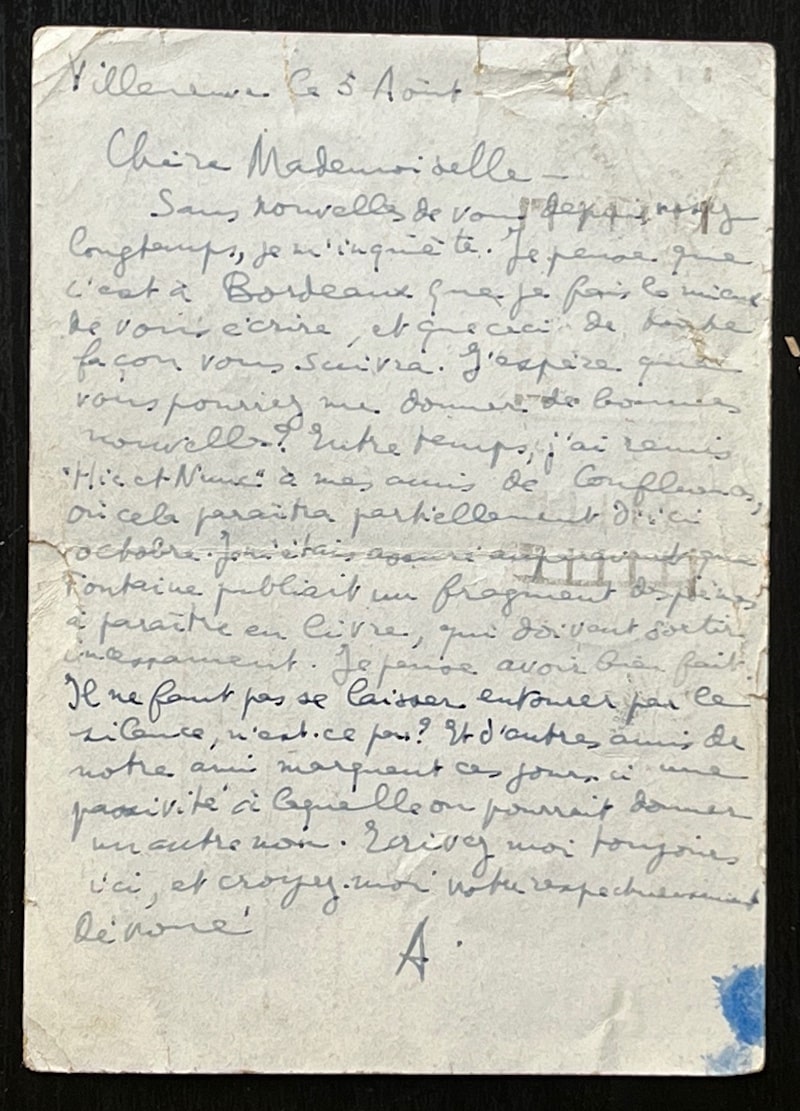 Villeneuve le 5 Août
Chère Mademoiselle —
Sans nouvelles de vous depuis assez
longtemps, je m'inquiète. Je pense que
c'est à Bordeaux que je fais le mieux
de vous écrire, et que ceci de toute
façon vous suivra. J'espère que
vous pourrez me donner de bonnes
nouvelles? Entre temps, j'ai remis
"Hic et Nunc" à mes amis de Confluences,
où cela paraîtra partiellement d'ici
octobre. Je m'étais assuré auparavant que
Fontaine publiait un fragment des pièces
à paraître en livre, qui doivent sortir
incessament. Je pense avoir bien fait.
Il ne faut pas se laisser entourer par le
silence, n'est-ce pas? Et d'autres amis de
notre ami marquent ces jours-ci une
passivité à laquelle on pourrait donner
un autre nom. Ecrivez moi toujours
ici, et croyez-moi votre respectueusement
dévoué
A.